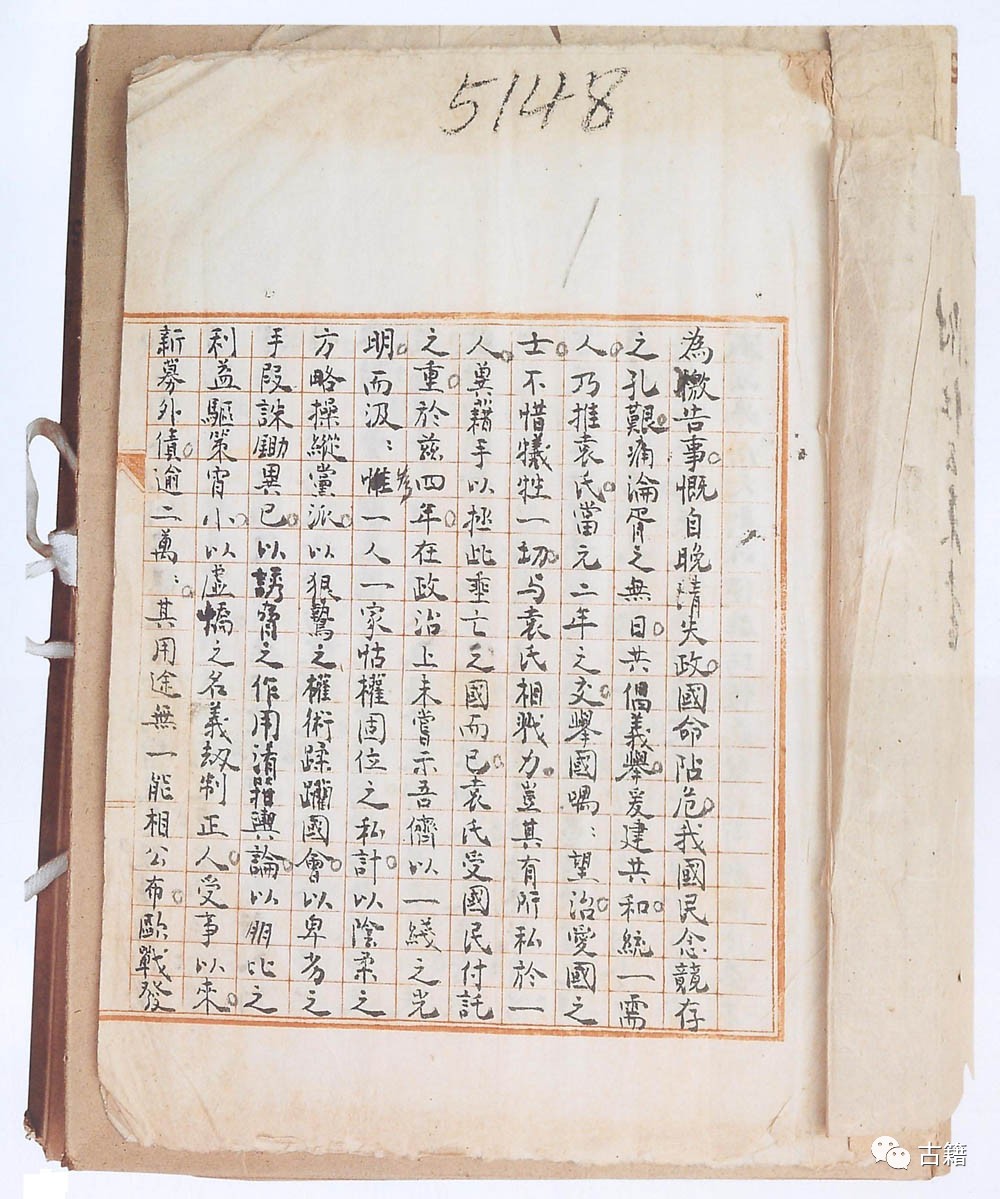 5148
為檄告事。慨自晚清失政。國命阽危。我國民念競存
之孔艱。痛淪胥之無日。共倡義舉。爰建共和。統一需
人。乃推袁氏。當元二年之交。舉國喁：望治。愛國之
士。不惜犧牲一切。与袁氏相戮力。豈其有所私於一
人。冀藉手以拯此垂亡之國而已。袁氏受國民付託
之重。於茲四年。在政治上未嘗示吾儕以一綫之光
明。而汲：惟務一人一家怙權固位之私計。以陰柔之
方略操縱黨派。以狠鷙之權術蹂躪國會。以卑劣之
手段誅鋤異己。以誘脅之作用淆箝輿論。以朋比之
利益驅策宵小。以虛憍之名義劫制正人。受事以來。
新募外債。逾二萬：。其用途無一能相公布。歐戰發
古籍